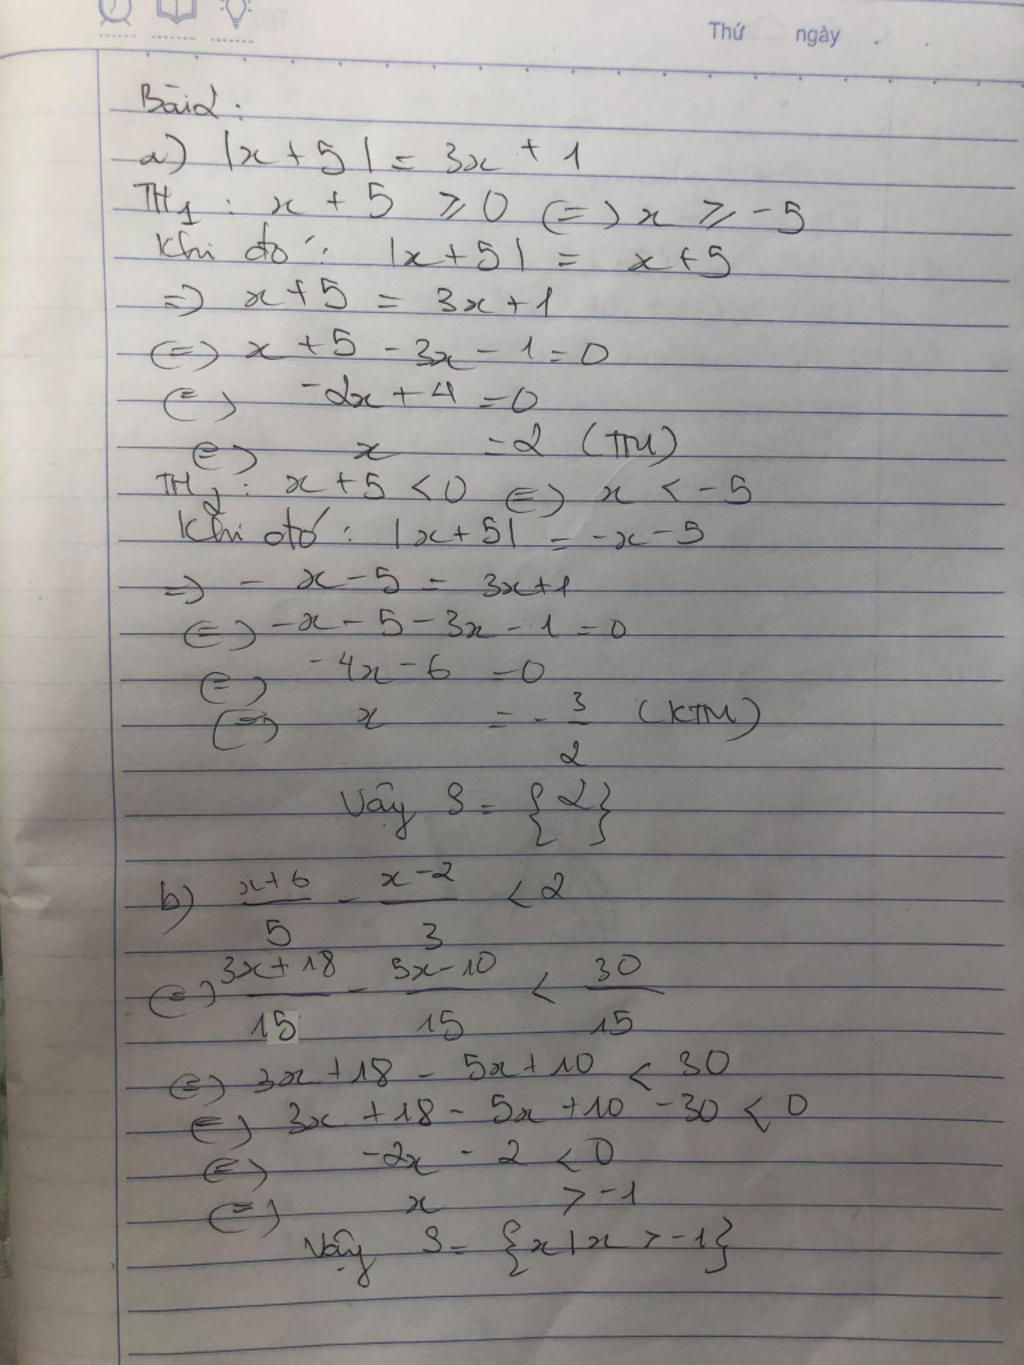 Thứ ngày
Bài 2:
a) |x + 5| = 3x + 1
TH1: x + 5 ⩾ 0 (=) x ⩾ -5
Khi đó: |x + 5| = x + 5
=) x + 5 = 3x + 1
(=) x + 5 - 3x - 1 = 0
(=) -2x + 4 = 0
(=) x = 2 (TM)
TH2: x + 5 < 0 (=) x < -5
Khi đó: |x + 5| = -x - 5
=) - x - 5 = 3x + 1
(=) -x - 5 - 3x - 1 = 0
(=) -4x - 6 = 0
(=) x = - 3/2 (KTM)
Vậy S = {2}
b) (x+6)/5 - (x-2)/3 < 2
(=) (3x+18)/15 - (5x-10)/15 < 30/15
(=) 3x + 18 - 5x + 10 < 30
(=) 3x + 18 - 5x + 10 - 30 < 0
(=) -2x - 2 < 0
(=) x > -1
Vậy S = {x | x > -1}